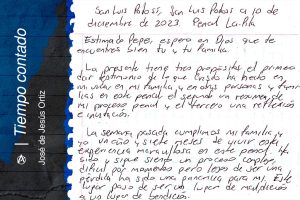 Tiempo contado
José de Jesús Ortiz
San Luis Potosí, San Luis Potosí a 10 de
diciembre de 2023. Penal La Pila
Estimado Pepe, espero en Dios que te
encuentres bien tu y tu familia.
La presente tiene tres propósitos el primero
dar testimonio de lo que Cristo ha hecho en
mi vida en mi familia, y en otras personas y familias
en este penal el segundo un resumen de
mi proceso penal y el tercero una reflexión
e invitación.
La semana pasada cumplimos mi familia y
yo un año y siete meses de vivir esta
experiencia maravillosa en este penal. Ha
sido y sigue siendo un proceso complejo,
difícil por momentos pero lejos de ser una
pérdida ha sido una ganancia para mí. Este
lugar paso de ser un lugar de maldición
a un lugar de bendición.